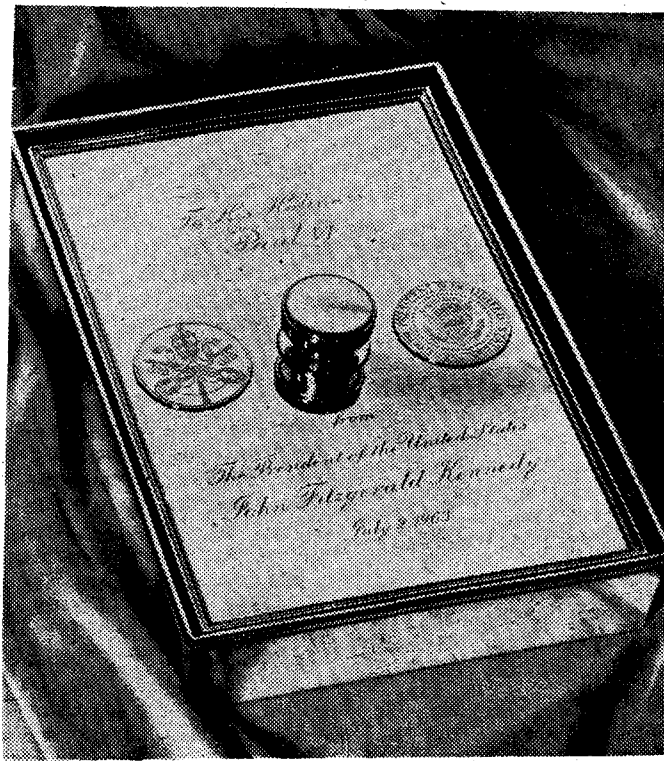 To His Holiness
Paul VI
from
The President of the United States
John Fitzgerald Kennedy
July 2 1963